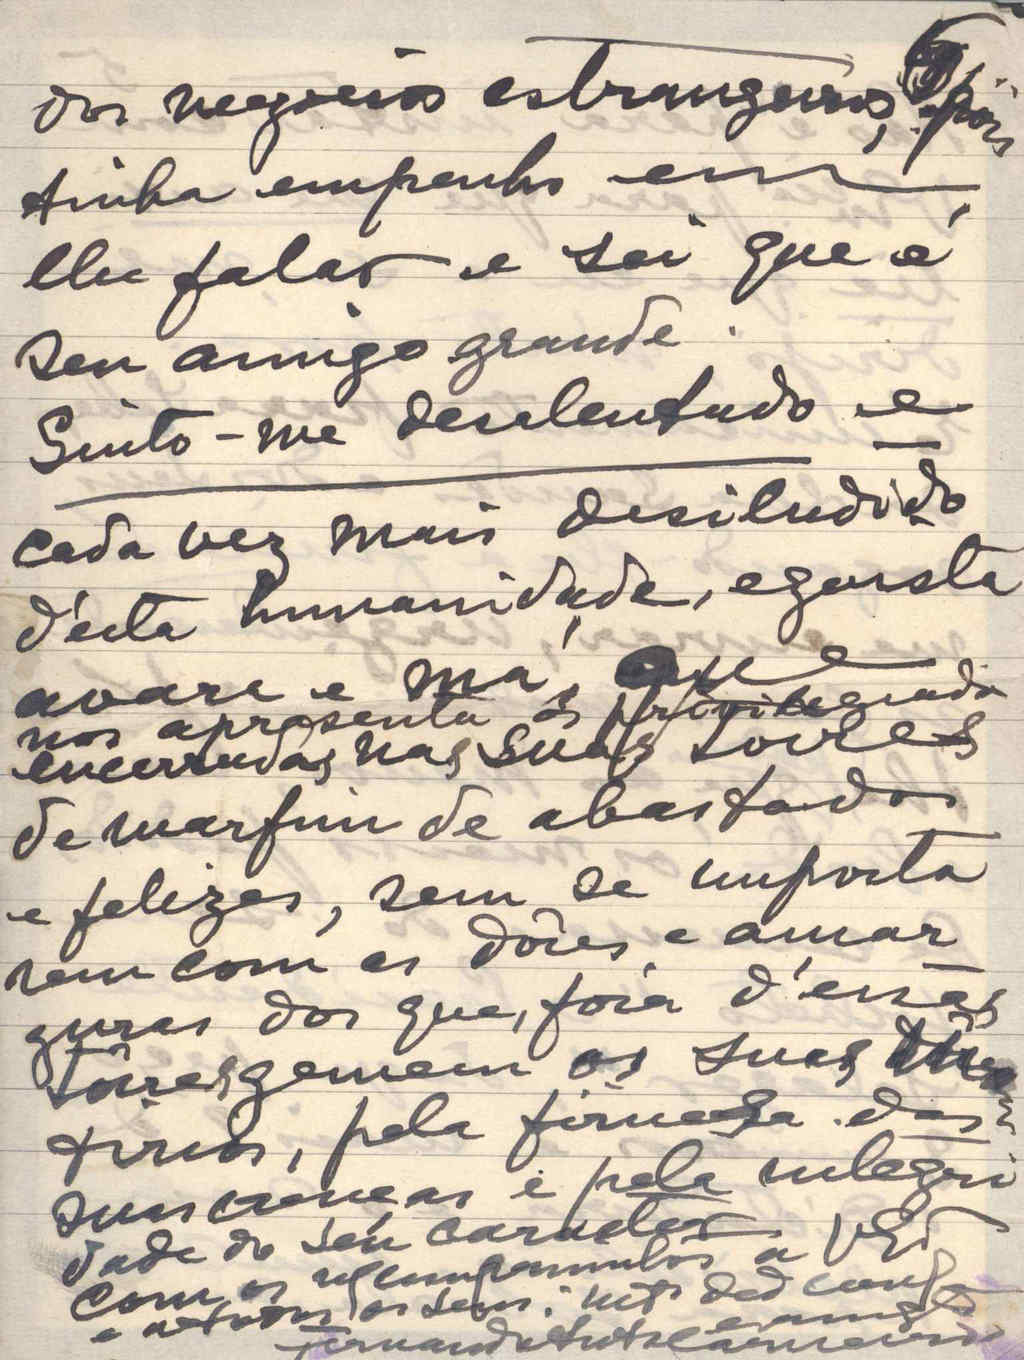 dos negocios estrangeiros, pois
tinha empenho em
lhe falar e sei que é
seu amigo grande.
Sinto-me desalentado e
cada vez mais desiludido
d'esta humanidade, egoista
avara e má, que
nos apresenta os privilegiados
encerrados nas suas torres
de marfim de abastados
e felizes, sem se importa
rem com as dôres e amar
guras dos que, fóra d'essas
torres, gemem os suas
tirios, pela firmesa das
suas crenças e pela integri
dade do seu caracter
com os cumprimentos a
e a todos os seus:
e amigo
Fernando